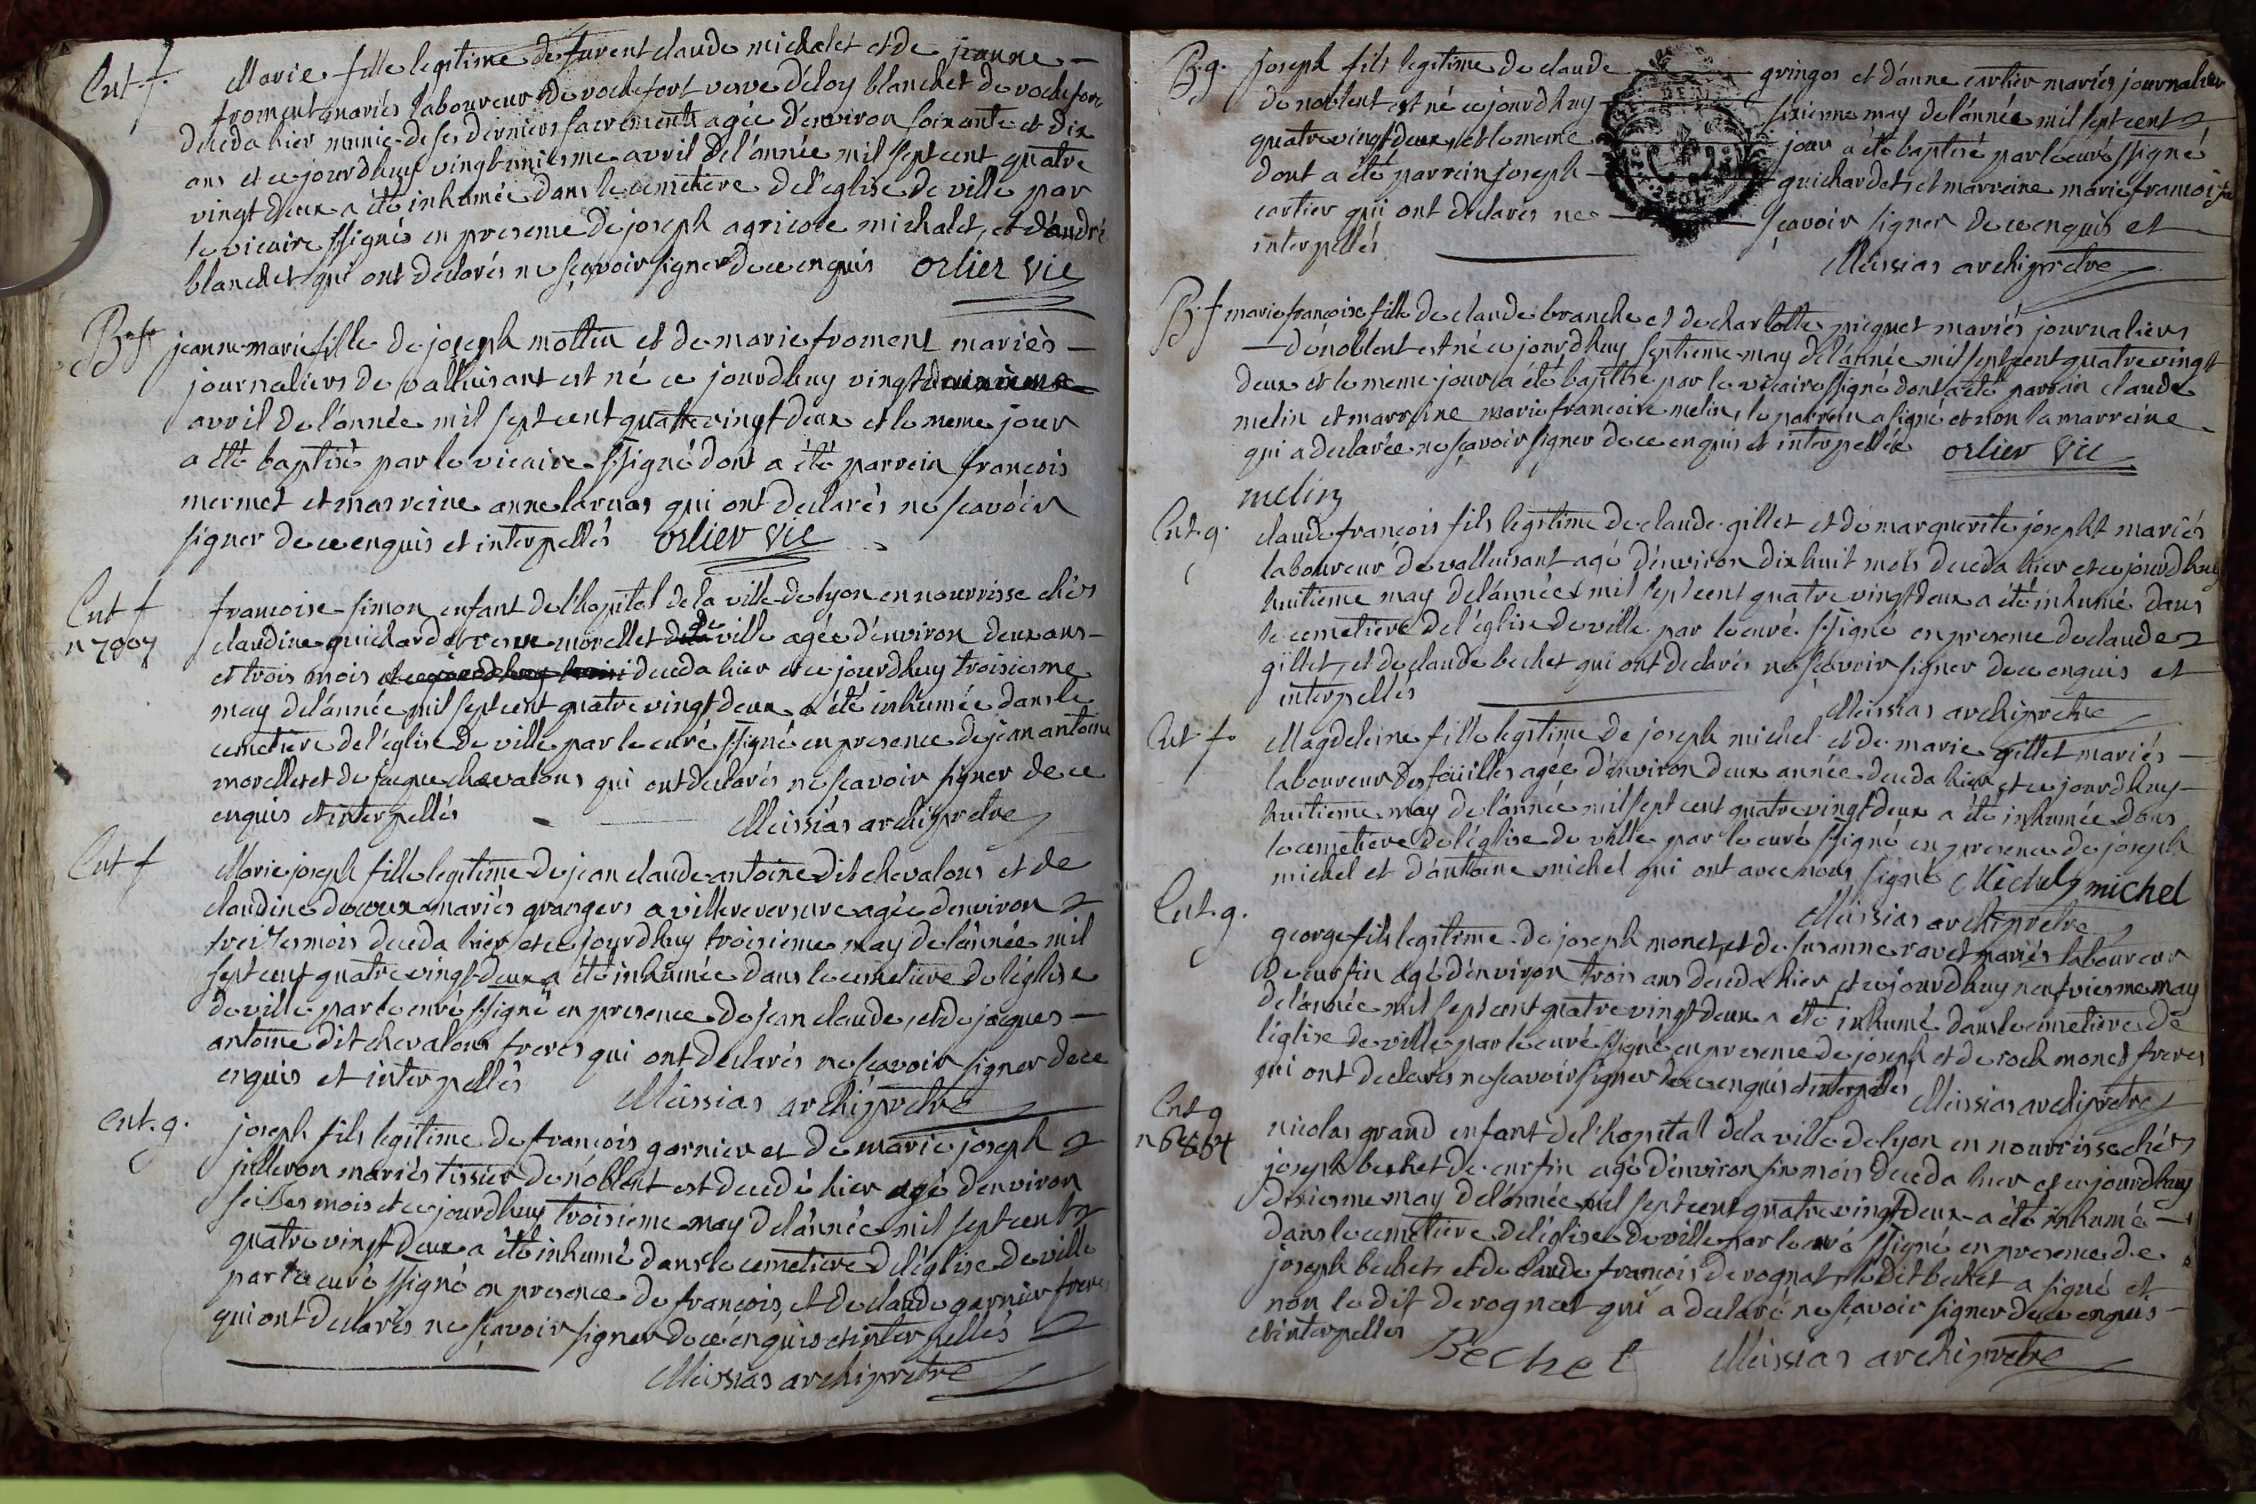 Ent. f. Marie fille legitime de furent claude michalet et de jeanne
froment mariés laboureur de rochefort veuve d'éloy blanchet de rochefort
deceda hier munie de ses derniers sacrements agée d'environ soixante et dix
ans et ce jourdhuy vingt unieme avril de l'année mil sept cent quatre
vingt deux a été inhumée dans le cemetiere de l'eglise de ville par
le vicaire ssigné en presence de joseph agricole michalet, et d'andré
blanchet qui ont declarés ne sçavoir signer de ce enquis orlier vic
B. f. jeanne marie fille de joseph mottin et de marie froment mariés
journaliers de valluisant est né ce jourdhuy vingt
avril de l'année mil sept cent quatre vingt deux et le meme jour
a été baptisé par le vicaire ssigné dont a été parrein françois
mermet et marreine anne larnas qui ont declarés ne scavoir
signer de ce enquis et interpellés orlier vic
Ent f francoise simon enfant de l'hopital de la ville de lyon en nourrisse chés
n 7007 claudine guichardet veuve morellet de ville agée d'environ deux ans
et trois mois deceda hier et ce jourdhuy troisieme
may de l'année mil sept cent quatre vingt deux a été inhumée dans le
cemetiere de l'église de ville par le curé ssigné en presence de jean antoine
morellet et de jacque chevalons qui ont declarés ne scavoir signer de ce
enquis et interpellés Meissias archipretre
Ent f Marie joseph fille legitime de jean claude antoine dit chevalons et de
claudine ducoux mariés grangers a villereversure agée d'environ
treizes mois deceda hier et ce jourdhuy troisieme may de l'année mil
sept cent quatre vingt deux a été inhumée dans le cemetiere de l'église
de ville par le curé ssigné en presence de jean claude, et de jacques
antoine dit chevalons freres qui ont declarés ne scavoir signer de ce
enquis et interpellés Meissias archipretre
Ent. g. joseph fils legitime de françois garnier et de marie joseph
juilleron mariés tissier de noblent est decedé hier agé d'environ
seizes mois et ce jourdhuy troisieme may de l'année mil sept cent
quatre vingt deux a été inhumé dans le cemetiere de l'église de ville
par le curé ssigné en presence de françois, et de claude garnier freres
qui ont declarés ne sçavoir signer de ce enquis et interpellés
Meissias archipretre
B. g. joseph fils legitime de claude gringos et d'anne cartier mariés journalier
de noblent est né ce jourdhuy sixieme may de l'année mil sept cent
quatre vingt deux, et le meme jour a été baptisé par le curé ssigné
dont a été parrein joseph guichardet, et marreine marie françoise
cartier qui ont declarés ne sçavoir signer de ce enquis et
interpellés
Meissias archipretre
B. f marie françoise fille de claude branche et de charlotte picquet mariés journaliers
de noblent est né ce jourdhuy septieme may de l'année mil sept cent quatre vingt
deux et le meme jour a été baptisé par le vicaire ssigné dont a été parrein claude
melin et marreine marie francoise melin, le parrein a signé et non la marreine
qui a declarée ne sçavoir signer de ce enquis et interpellée orlier vic
melin
Ent. g. claude françois fils legitime de claude gillet et de marguerite josepht mariés
laboureur de valluisant agé d'environ dix huit mois deceda hier et ce jourdhuy
huitieme may de l'année mil sept cent quatre vingt deux a été inhumé dans
le cemetiere de l'église de ville par le curé ssigné en presence de claude
gillet, et de claude bechet qui ont declarés ne sçavoir signer de ce enquis et
interpellés
Meissias archipretre
Ent. f. Magdeleine fille legitime de joseph michel et de marie gillet mariés
laboureur des foüilles agée d'environ deux année deceda hier et ce jourdhuy
huitieme may de l'année mil sept cent quatre vingt deux a été inhumée dans
le cemetiere de l'église de ville par le curé ssigné en presence de joseph
michel et d'antoine michel qui ont avec nous signé Michel michel
Meissias archipretre
Ent. g. george fils legitime de joseph monet, et de susanne ravet mariés laboureur
de curfin agé d'environ trois ans deceda hier et ce jourdhuy neufviesme may
de l'année mil sept cent quatre vingt deux a été inhumé dans le cemetiere de
l'église de ville par le curé ssigné en presence de joseph et de roch monet freres
qui ont declarés ne scavoir signer de ce enquis et interpellés Meissias archipretre
Ent g nicolas grand enfant de l'hopital de la ville de lyon en nourrisse chés
n 6864 joseph bechet de curfin agé d'environ six mois deceda hier et ce jourdhuy
dixiesme may de l'année mil sept cent quatre vingt deux a été inhumé
dans le cemetiere de l'église de ville par le curé ssigné en presence de
joseph bechet, et de claude françois derognat, ledit bechet a signé et
non le dit derognat qui a declaré ne sçavoir signer de ce enquis
et interpellés Bechet Meissias archipretre